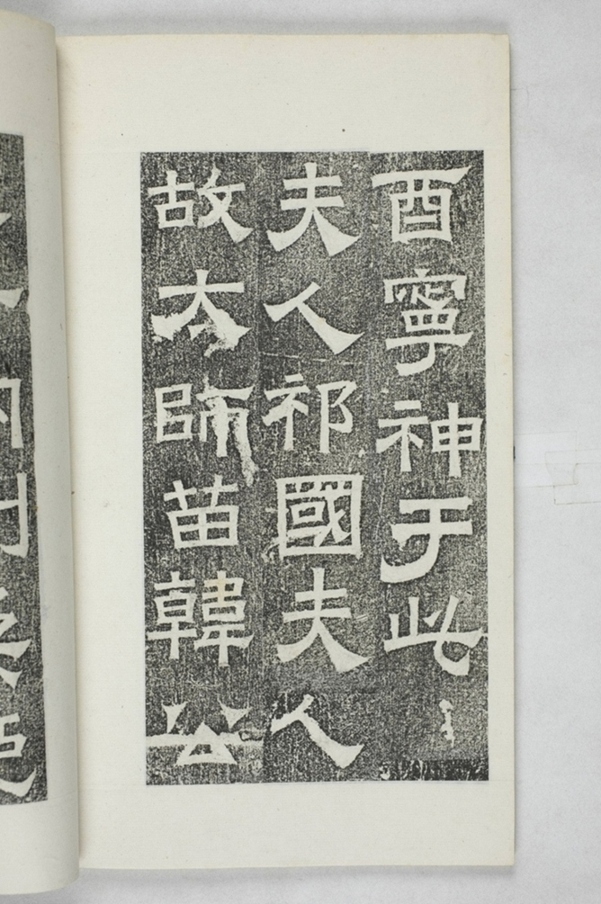 酉寧神于此
夫人祁國夫人
故太師苗韓公